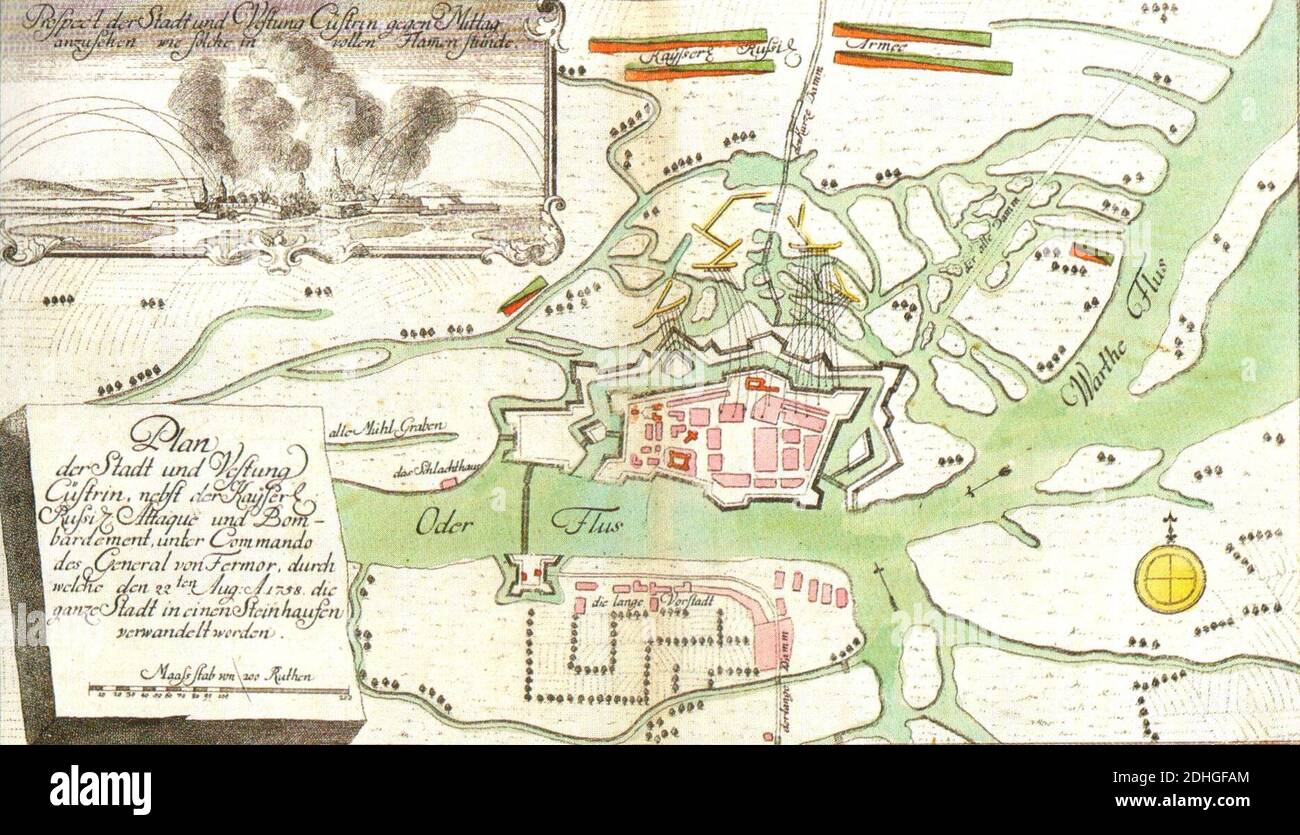 Prospect der Stadt und Vestung Cüstrin gegen Mittag
anzusehen wie solche in vollen Flamen stunde.
Kayserl Russis Armee
der kurze Damm
der alte Damm
Warthe Flus
alte Mühl Graben
das Schlachthaus
Oder Flus
die lange Vorstadt
der lange Damm
Plan
der Stadt und Vestung
Cüstrin, nebst der Kayserl
Russis Attaque und Bom-
bardement, unter Commando
des General von Fermor, durch
welche den 22ten Aug: A 1758. die
ganze Stadt in einen Steinhaufen
verwandelt worden.
Maasstab von 200 Ruthen
10 20 30 40 50 60 70 80 90 100 200
alamy
Image ID: 2DHGFAM
www.alamy.com